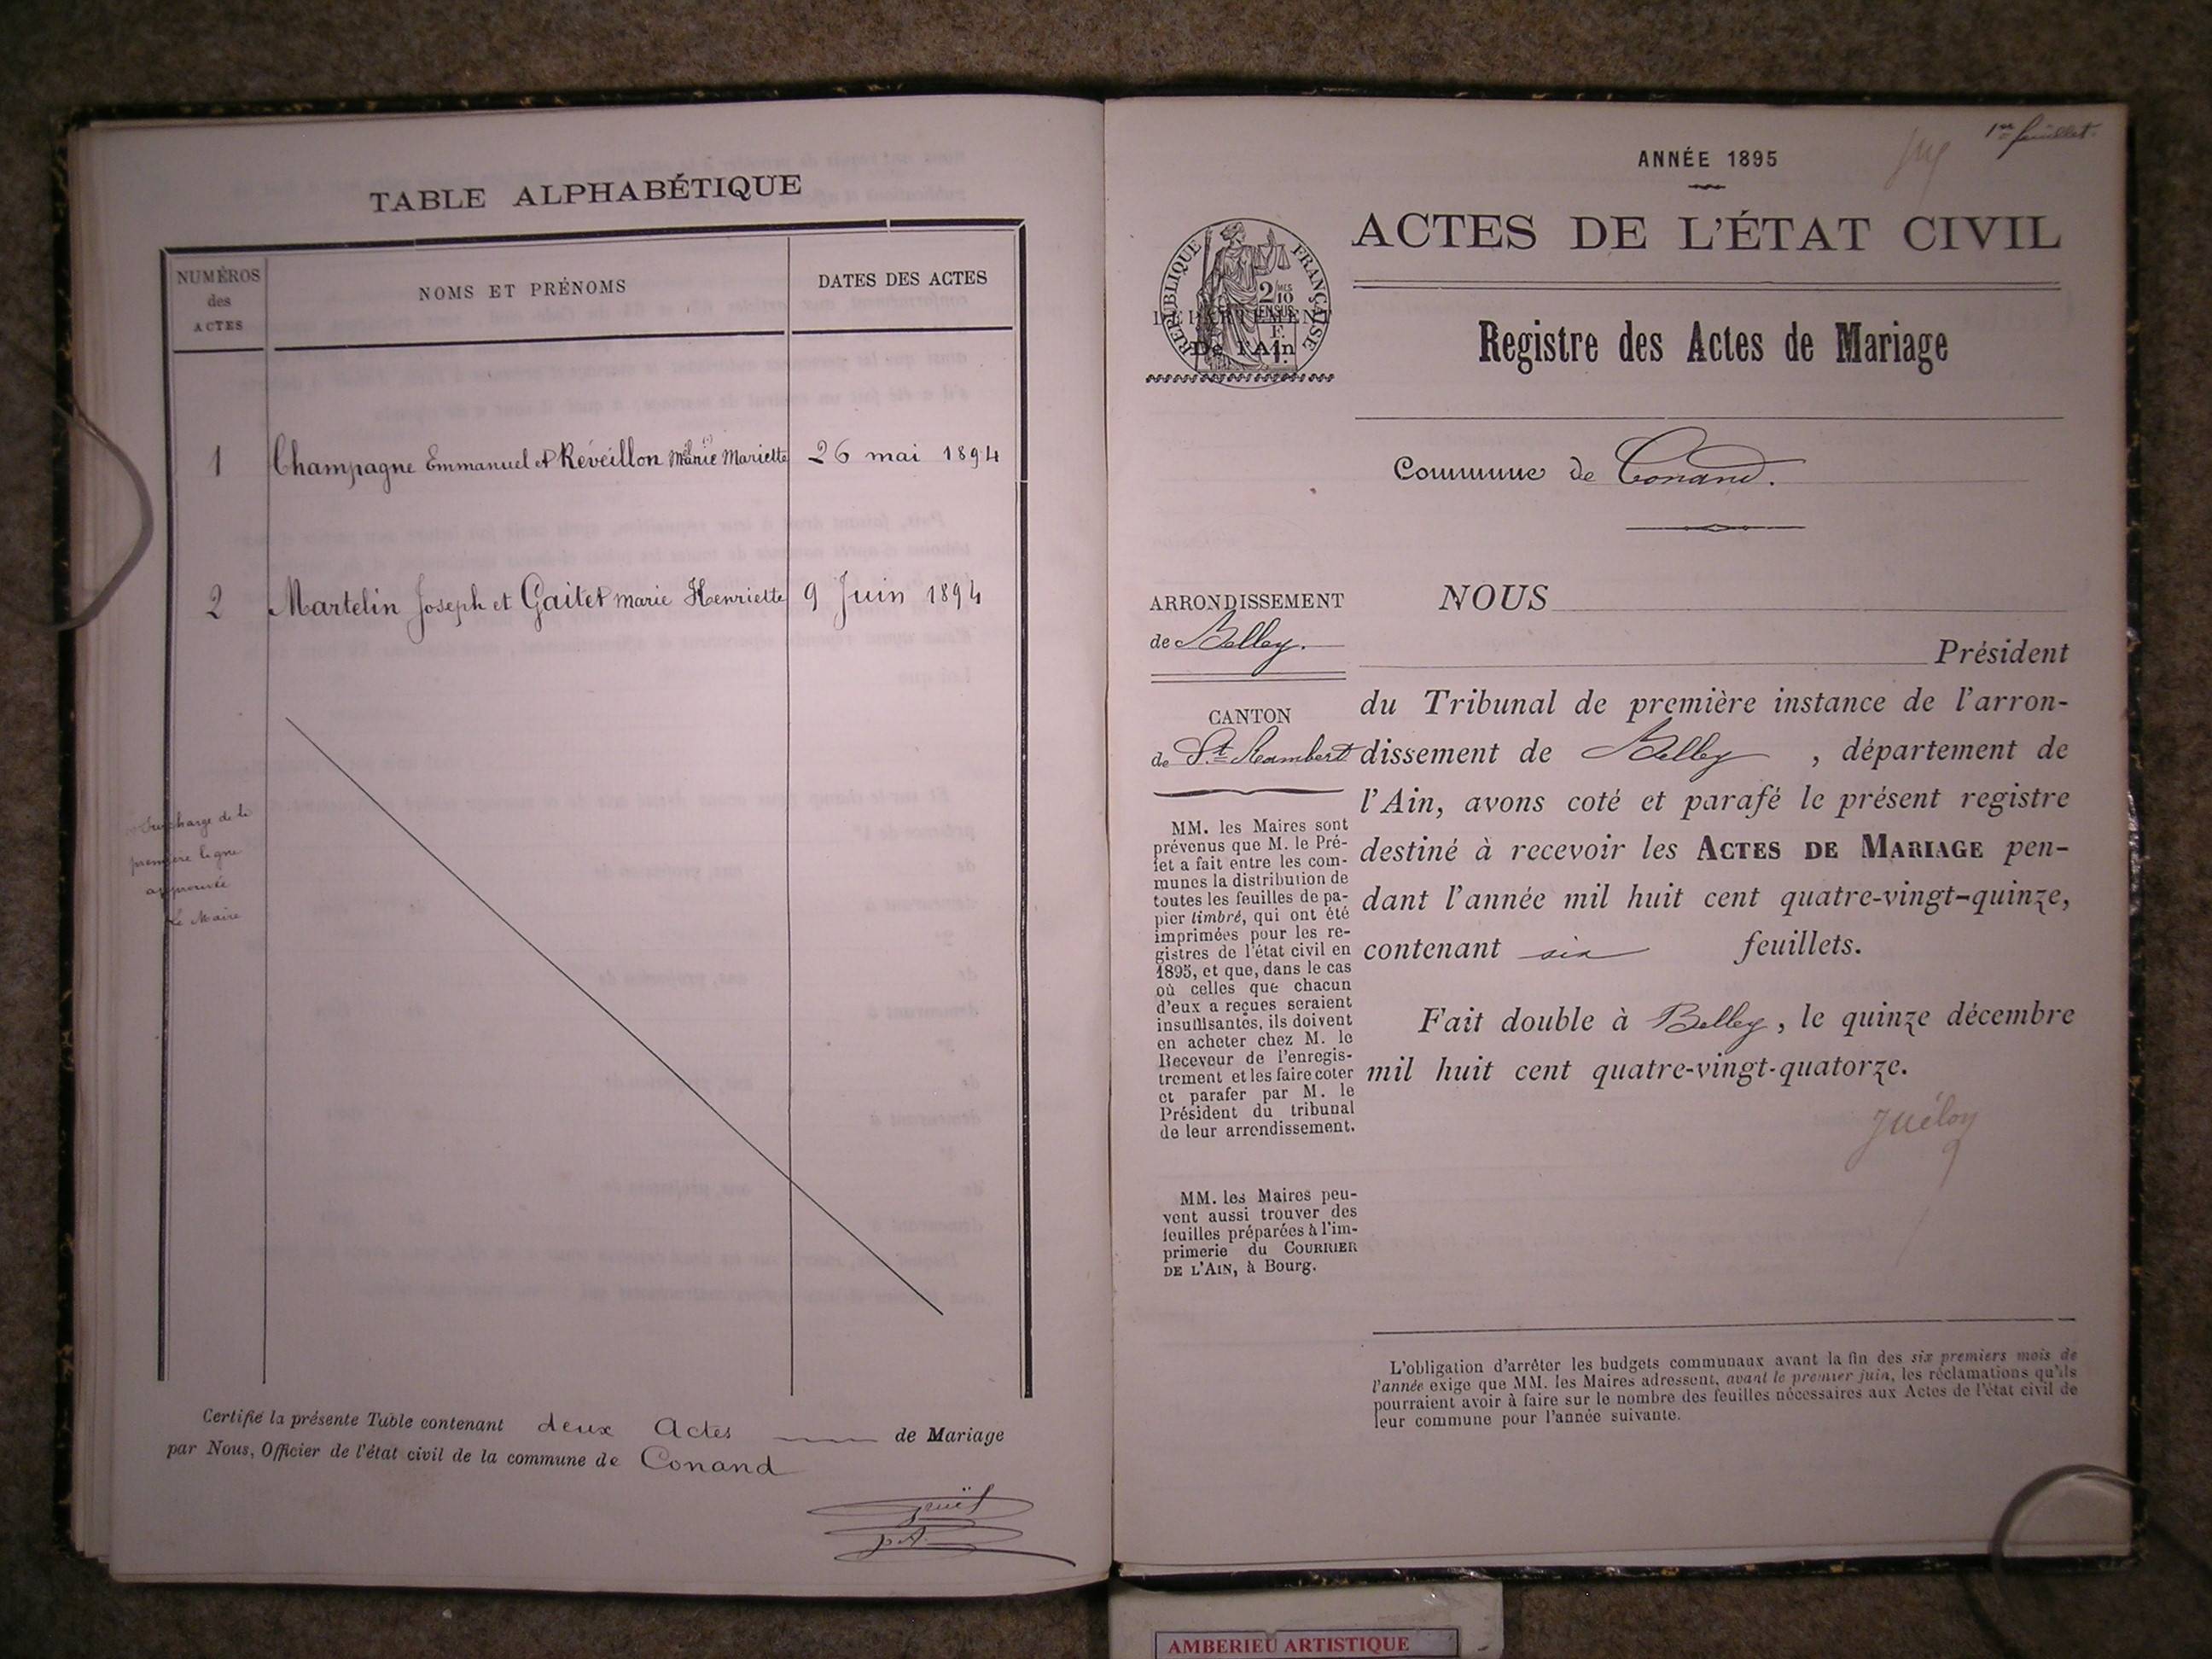 TABLE ALPHABÉTIQUE
NUMÉROS
des
ACTES
NOMS ET PRÉNOMS
DATES DES ACTES
1 Champagne Emmanuel et Réveillon Marie Mariette 26 mai 1894
2 Martelin Joseph et Gaitet Marie Henriette 9 Juin 1894
Surcharge de la
première ligne
approuvée
Le Maire
Certifié la présente Table contenant deux Actes de Mariage
par Nous, Officier de l'état civil de la commune de Conand
1er feuillet.
ANNÉE 1895
ACTES DE L'ÉTAT CIVIL
RÉPUBLIQUE FRANÇAISE
DÉPARTEMENT
De l'Ain
Registre des Actes de Mariage
Commune de Conand.
ARRONDISSEMENT
de Belley.
CANTON
de St Rambert
MM. les Maires sont
prévenus que M. le Pré-
fet a fait entre les com-
munes la distribution de
toutes les feuilles de pa-
pier timbré, qui ont été
imprimées pour les re-
gistres de l'état civil en
1895, et que, dans le cas
où celles que chacun
d'eux a reçues seraient
insuffisantes, ils doivent
en acheter chez M. le
Receveur de l'enregis-
trement et les faire coter
et parafer par M. le
Président du tribunal
de leur arrondissement.
MM. les Maires peu-
vent aussi trouver des
feuilles préparées à l'im-
primerie du COURRIER
DE L'AIN, à Bourg.
NOUS
Président
du Tribunal de première instance de l'arron-
dissement de Belley, département de
l'Ain, avons coté et parafé le présent registre
destiné à recevoir les ACTES DE MARIAGE pen-
dant l'année mil huit cent quatre-vingt-quinze,
contenant six feuillets.
Fait double à Belley, le quinze décembre
mil huit cent quatre-vingt-quatorze.
L'obligation d'arrêter les budgets communaux avant la fin des six premiers mois de
l'année exige que MM. les Maires adressent, avant le premier juin, les réclamations qu'ils
pourraient avoir à faire sur le nombre des feuilles nécessaires aux Actes de l'état civil de
leur commune pour l'année suivante.
AMBERIEU ARTISTIQUE